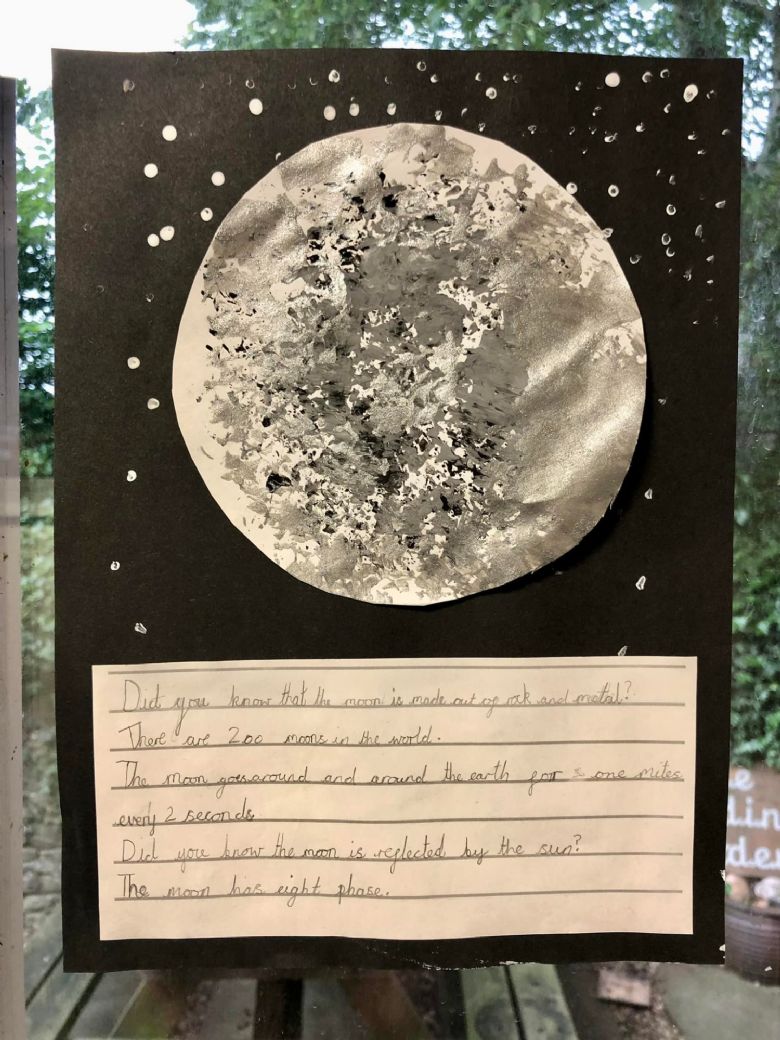 Did you know that the moon is made out of rock and metal?
There are 200 moons in the world.
The moon goes around and around the earth for one miles
every 2 seconds
Did you know the moon is reglected by the sun?
The moon has eight phase.